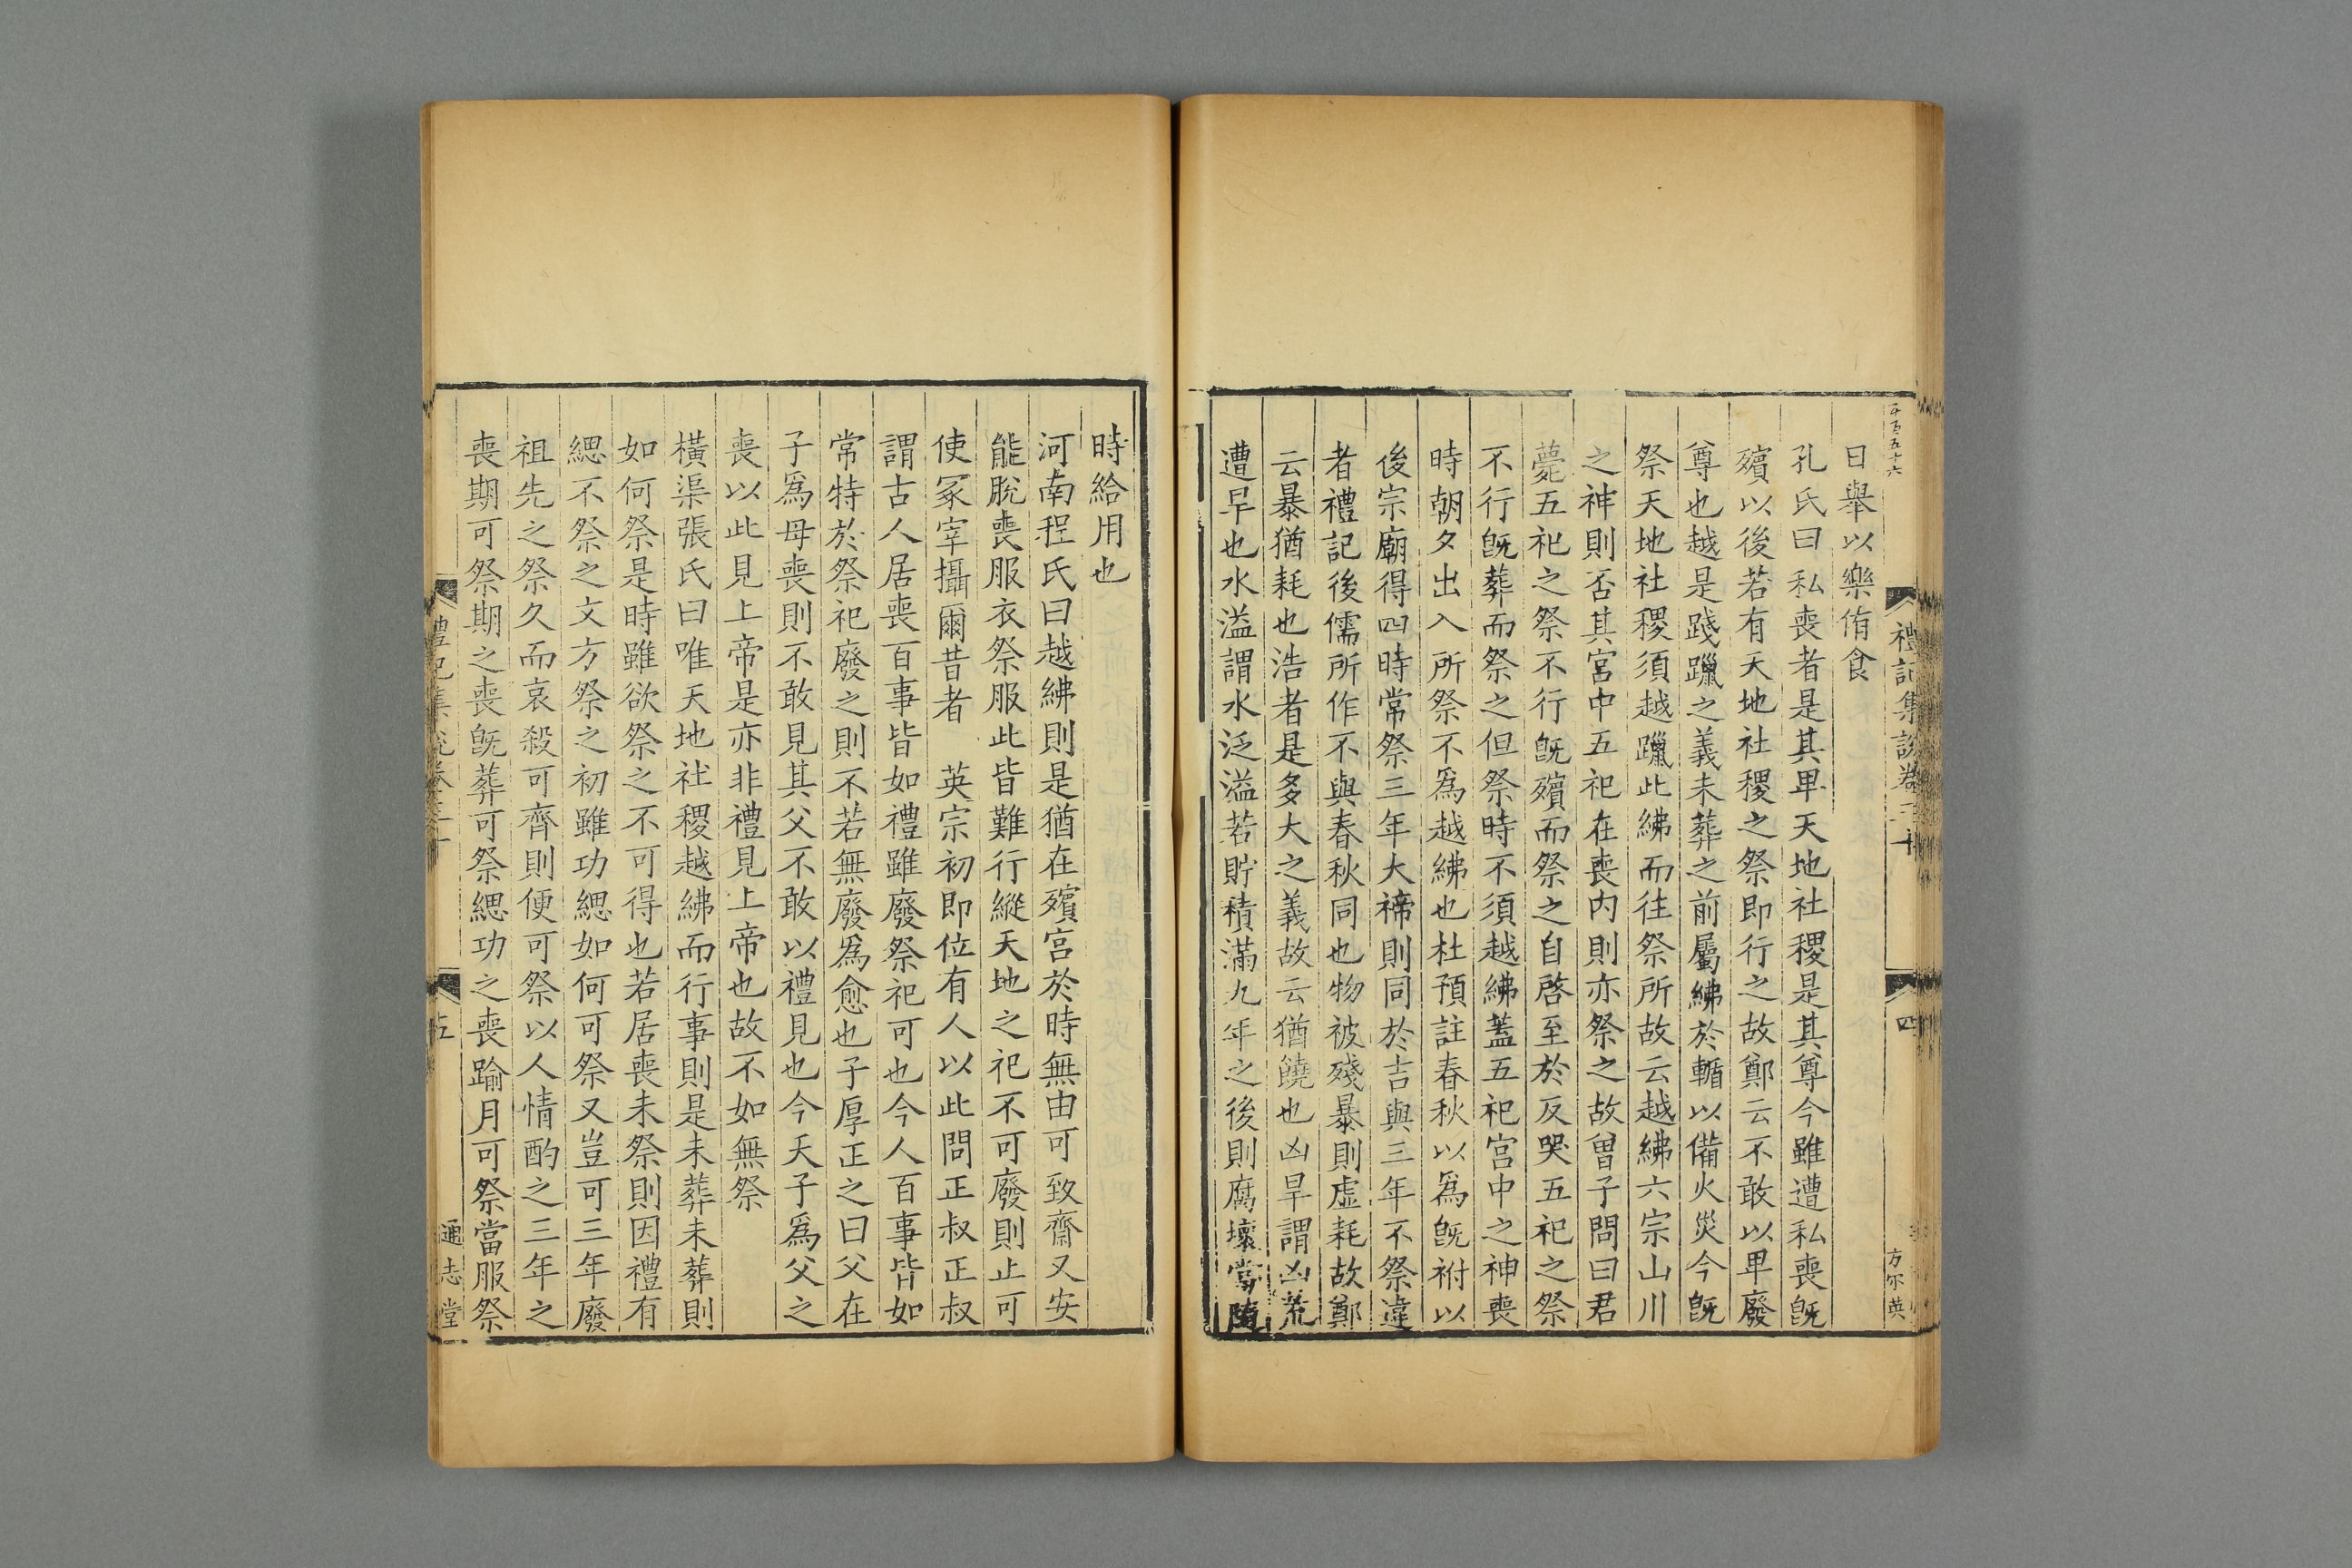 禮記集說卷三十
四
方尔英
日舉以樂侑食
孔氏曰私喪者是其卑天地社稷是其尊今雖遭私喪旣
殯以後若有天地社稷之祭即行之故鄭云不敢以卑廢
尊也越是踐躐之義未葬之前屬紼於輴以備火災今旣
祭天地社稷須越躐此紼而往祭所故云越紼六宗山川
之神則否其宮中五祀在喪内則亦祭之故曾子問曰君
薨五祀之祭不行旣殯而祭之自啓至於反哭五祀之祭
不行旣葬而祭之但祭時不須越紼蓋五祀宮中之神喪
時朝夕出入所祭不爲越紼也杜預註春秋以爲旣祔以
後宗廟得四時常祭三年大禘則同於吉與三年不祭違
者禮記後儒所作不與春秋同也物被殘暴則虛耗故鄭
云暴猶耗也浩者是多大之義故云猶饒也凶旱謂凶荒
遭旱也水溢謂水泛溢若貯積滿九年之後則腐壞當隨
時給用也
河南程氏曰越紼則是猶在殯宮於時無由可致齋又安
能脫喪服衣祭服此皆難行縱天地之祀不可廢則止可
使冢宰攝爾昔者 英宗初即位有人以此問正叔正叔
謂古人居喪百事皆如禮雖廢祭祀可也今人百事皆如
常特於祭祀廢之則不若無廢爲愈也子厚正之曰父在
子爲母喪則不敢見其父不敢以禮見也今天子爲父之
喪以此見上帝是亦非禮見上帝也故不如無祭
橫渠張氏曰唯天地社稷越紼而行事則是未葬未葬則
如何祭是時雖欲祭之不可得也若居喪未祭則因禮有
緦不祭之文方祭之初雖功緦如何可祭又豈可三年廢
祖先之祭久而哀殺可齊則便可祭以人情酌之三年之
喪期可祭期之喪旣葬可祭緦功之喪踰月可祭當服祭
禮記集說卷三十
五
通志堂